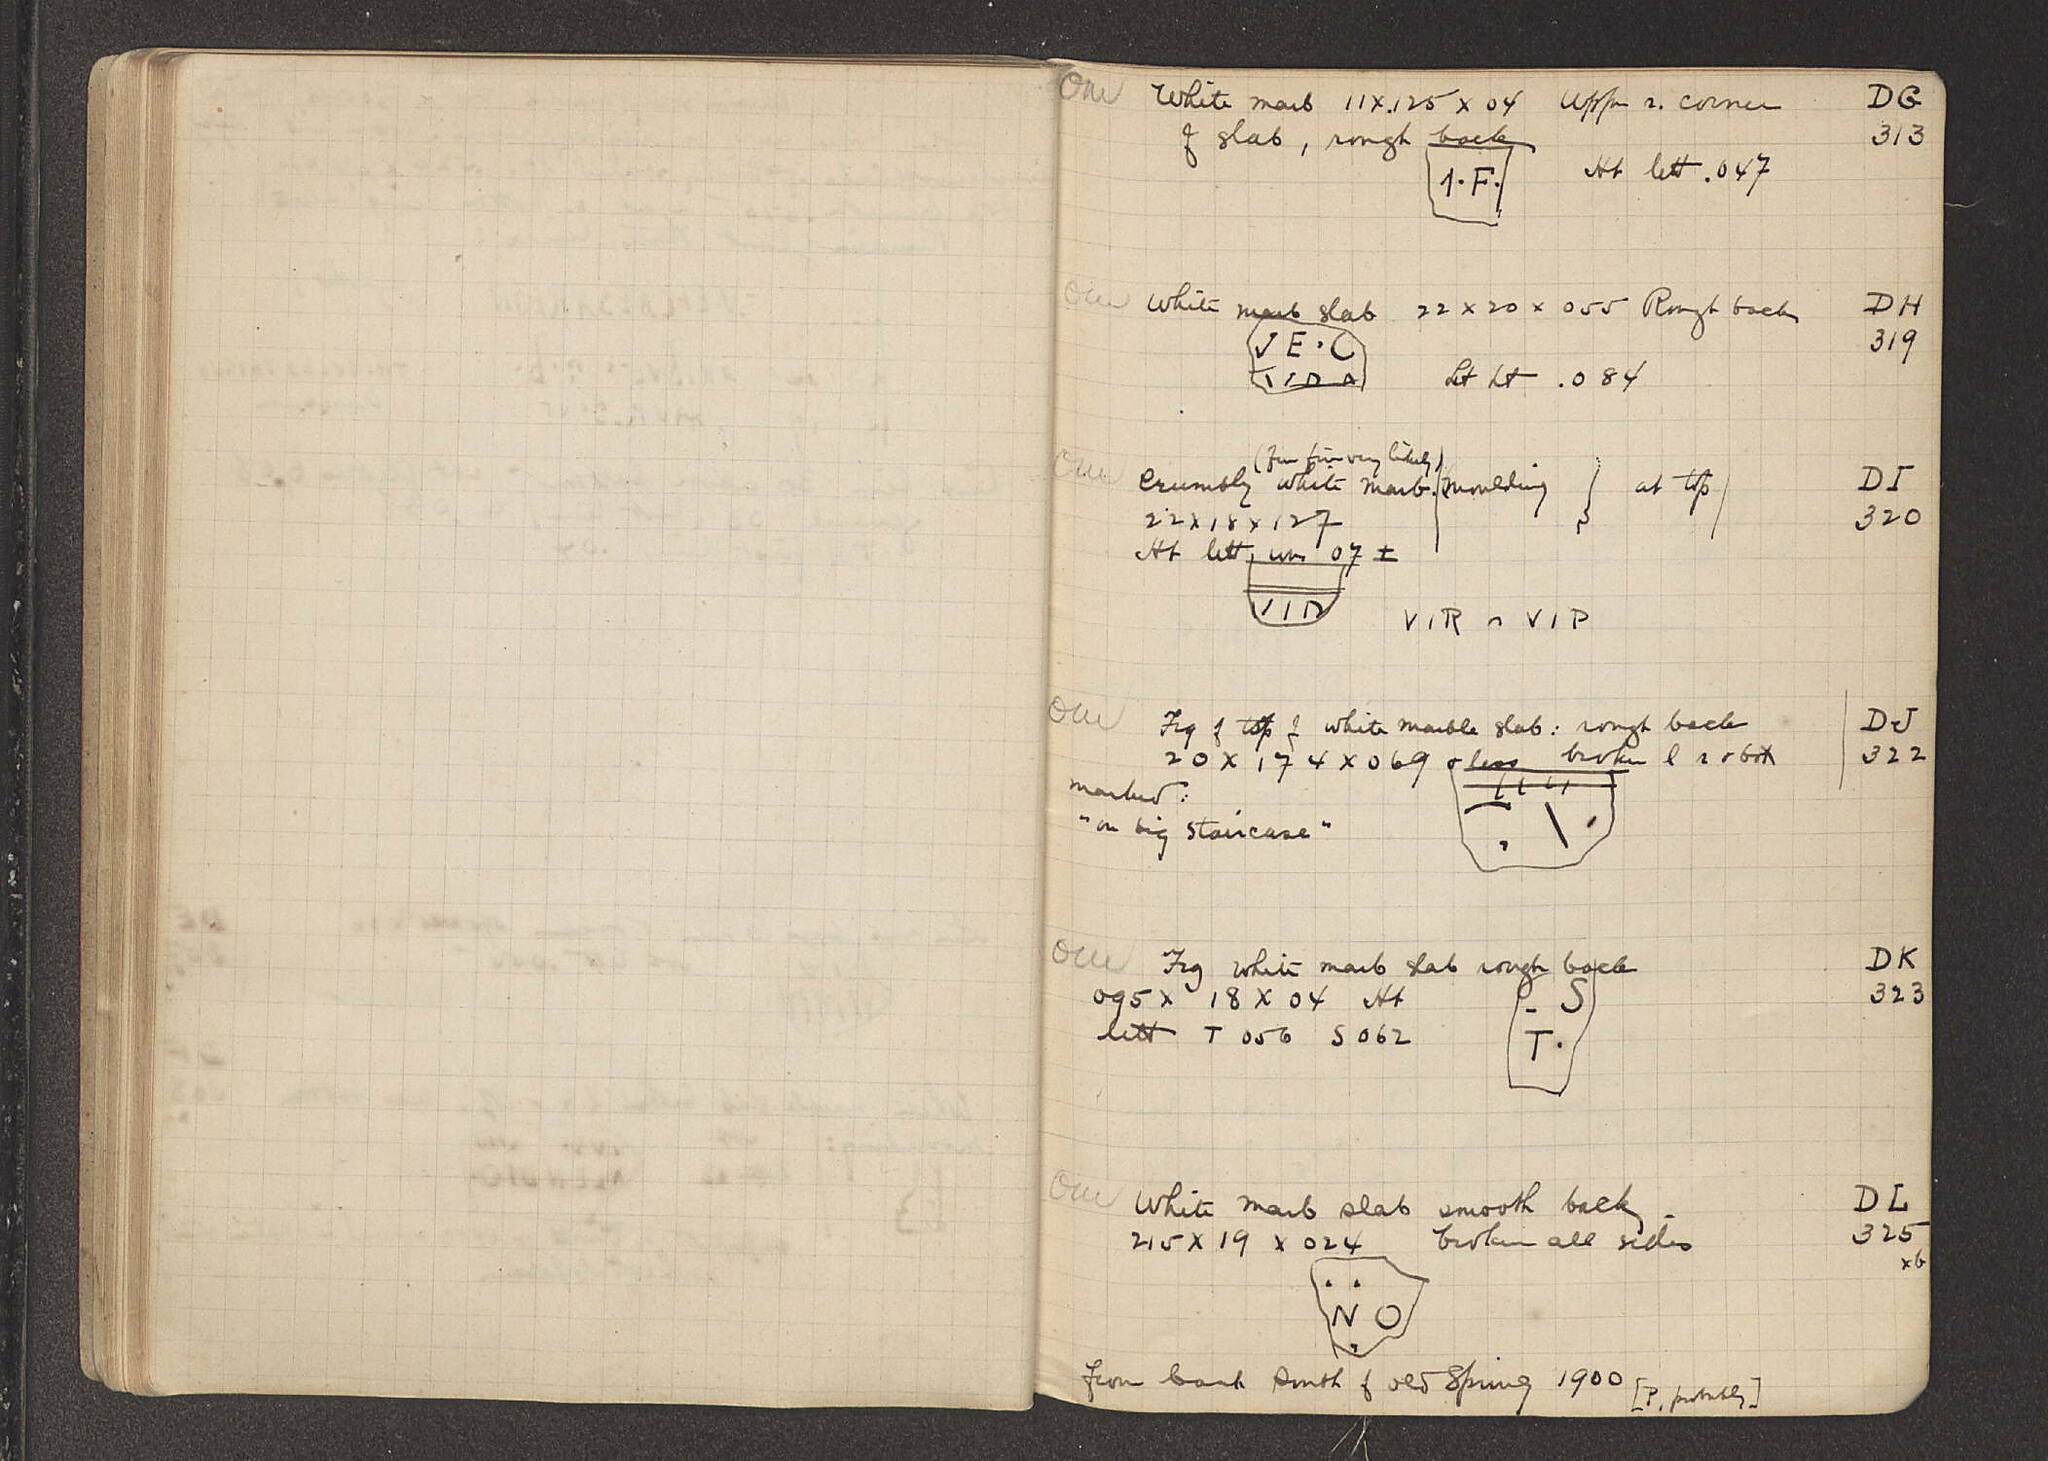 One White marb 11x.125 x 04 Upper r. corner DG
of slab, rough back 313
1·F· Ht lett .047
One White marb slab 22 x 20 x 055 Rough back DH
319
VE·C
VIR Ht lett .084
One
Crumbly white marb. moulding at top DI
22x18x127 320
Ht lett, 07 ±
VIR VIR VIP
One Frg of top of white marble slab: rough back DJ
20 x 174 x 069 or less broken l r & bot 322
marked:
"on big staircase"
One Frg white marb slab rough back DK
095 x 18 x 04 Ht S 323
lett T 056 S 062 T·
One White marb slab smooth back DL
215 x 19 x 024 broken all sides 325
xb
N O
From bank South of old Spring 1900 [P, probably]